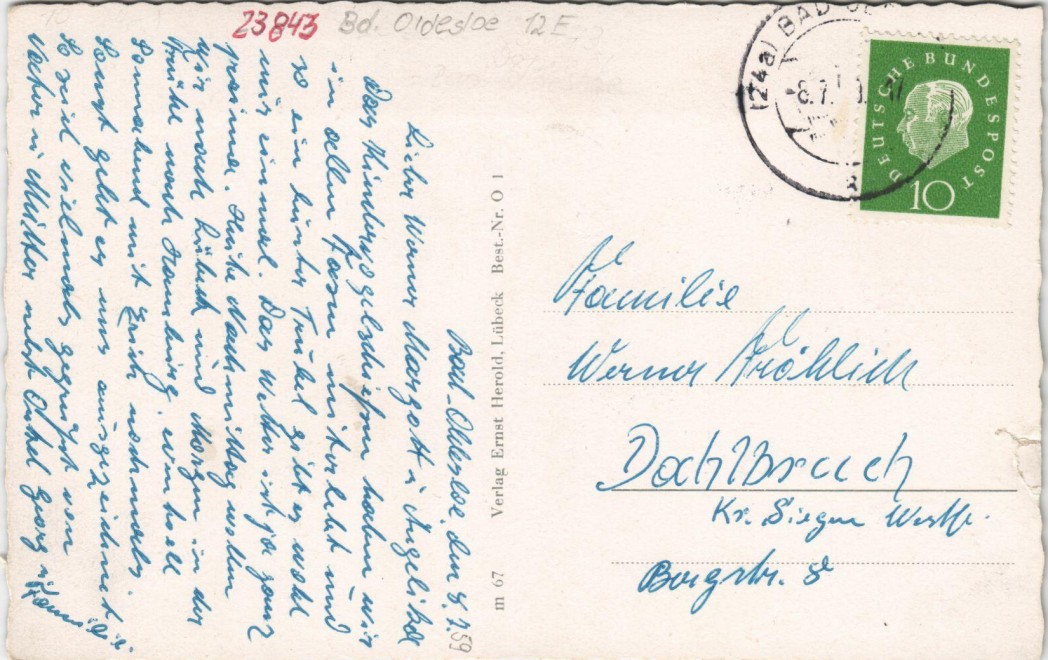 23843 Bd. Oldesloe 12 E
(24a) BAD
-8.7.
DEUTSCHE BUNDESPOST
10
Bad-Oldesloe, den 8.7.59
Lieber Werner Margott u. Angelika
Das Kindervogelschiessen haben wir
in allen Fasen miterlebt und
so ein bunter Trubel gibt es wohl
nur einmal. Das Wetter ist ja ganz
prima. Heute Nachmittag wollen
wir nach Lübeck und Morgen in der
Frühe nach Hamburg, eventuell
Sonnabend mit Erich nochmals.
Sonst gehet es uns ausgezeichnet
So seid vielmals gegrüßt von
Vater u. Mutter nebst Onkel Georg u.
Familie
Verlag Ernst Herold, Lübeck Best.-Nr. O 1
m 67
Familie
Werner Fröhlich
Dahlbruch
Kr. Siegen Westf.
Bergstr. 8